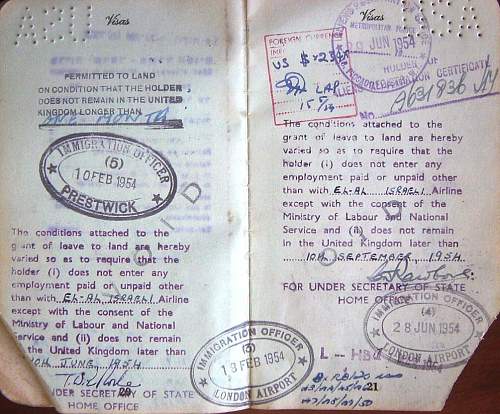 Visas
PERMITTED TO LAND
ON CONDITION THAT THE HOLDER
DOES NOT REMAIN IN THE UNITED
KINGDOM LONGER THAN
ONE MONTH
IMMIGRATION OFFICER
(5)
10 FEB 1954
PRESTWICK
VOID
The conditions attached to the
grant of leave to land are hereby
varied so as to require that the
holder (i) does not enter any
employment paid or unpaid other
than with EL-AL ISRAELI Airline
except with the consent of the
Ministry of Labour and National
Service and (ii) does not remain
in the United Kingdom later than
10th JUNE, 1954
UNDER SECRETARY OF STATE
HOME OFFICE
20
IMMIGRATION OFFICER
13 FEB 1954
LONDON AIRPORT
Visas
FOREIGN CURRENCY
US $
LAP
15/
METROPOLITAN
28 JUN 1954
HOLDER OF
REGISTRATION CERTIFICATE
No. A631836
The conditions attached to the
grant of leave to land are hereby
varied so as to require that the
holder (i) does not enter any
employment paid or unpaid other
than with EL-AL ISRAELI Airline
except with the consent of the
Ministry of Labour and National
Service and (ii) does not remain
in the United Kingdom later than
10th SEPTEMBER, 1954
FOR UNDER SECRETARY OF STATE
HOME OFFICE
IMMIGRATION OFFICER
(4)
28 JUN 1954
LONDON AIRPORT
21